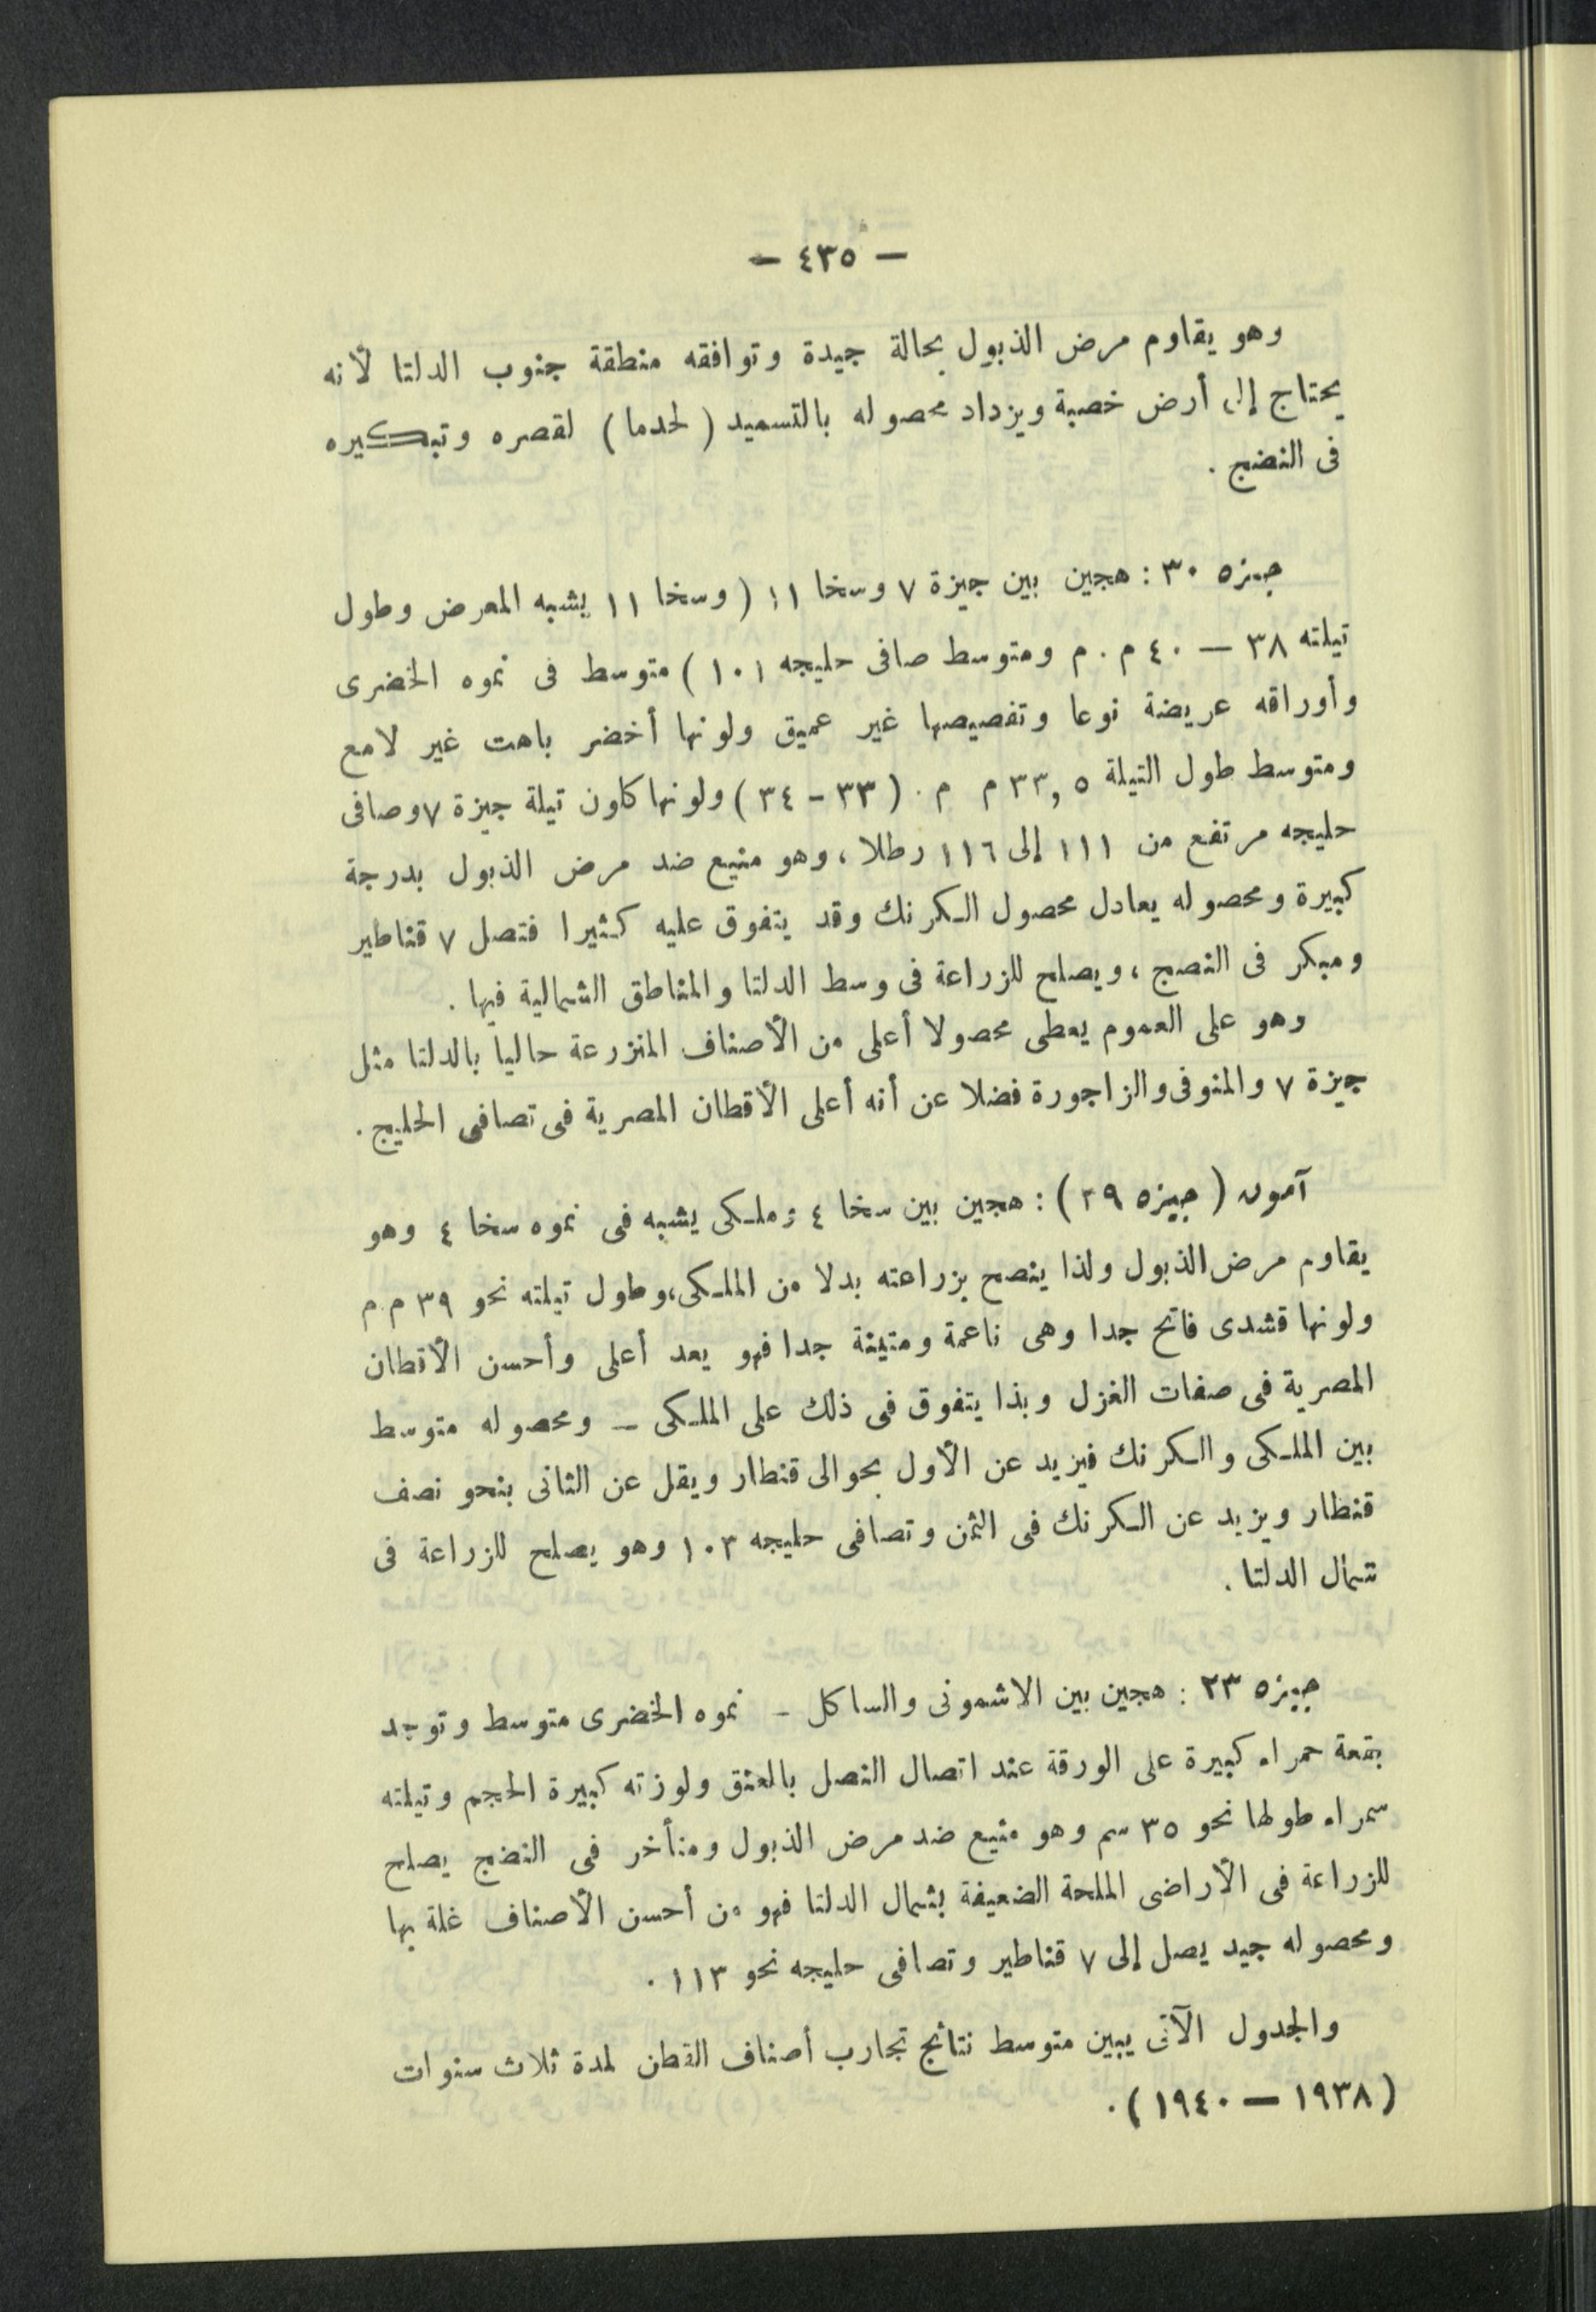 — ٤٣٥ —
وهو يقاوم مرض الذبول بحالة جيدة وتوافقه منطقة جنوب الدلتا لأنه
يحتاج إلى أرض خصبة ويزداد محصوله بالتسميد ( لحدما ) لقصره وتبكيره
فى النضج .
جيزه ٣٠ : هجين بين جيزة ٧ وسخا ١١ ( وسخا ١١ يشبه المعرض وطول
تيلته ٣٨ — ٤٠ م . م ومتوسط صافى حليجه ١٠١ ) متوسط فى نموه الخضرى
وأوراقه عريضة نوعا وتفصيصها غير عميق ولونها أخضر باهت غير لامع
ومتوسط طول التيلة ٣٣,٥ م م . ( ٣٣ - ٣٤ ) ولونها كاون تيلة جيزة ٧ وصافى
حليجه مرتفع من ١١١ إلى ١١٦ رطلا ، وهو منيع ضد مرض الذبول بدرجة
كبيرة ومحصوله يعادل محصول الكرنك وقد يتفوق عليه كثيرا فتصل ٧ قناطير
ومبكر فى النصج ، ويصلح للزراعة فى وسط الدلتا والمناطق الشمالية فيها .
وهو على العموم يعطى محصولا أعلى من الأصناف المنزرعة حاليا بالدلتا مثل
جيزة ٧ والمنوفى والزاجورة فضلا عن أنه أعلى الأقطان المصرية فى تصافى الحليج .
آمون ( جيزه ٣٩ ) : هجين بين سخا ٤ وملكى يشبه فى نموه سخا ٤ وهو
يقاوم مرض الذبول ولذا ينصح بزراعته بدلا من الملكى، وطول تيلته نحو ٣٩ م . م
ولونها قشدى فاتح جدا وهى ناعمة ومتينة جدا فهو يعد أعلى وأحسن الأقطان
المصرية فى صفات الغزل وبذا يتفوق فى ذلك على الملكى — ومحصوله متوسط
بين الملكى والكرنك فيزيد عن الأول بحوالى قنطار ويقل عن الثانى بنحو نصف
قنطار ويزيد عن الكرنك فى الثمن وتصافى حليجه ١٠٣ وهو يصلح للزراعة فى
شمال الدلتا .
جيزه ٢٣ : هجين بين الاشمونى والساكل — نموه الخضرى متوسط وتوجد
بقعة حمراء كبيرة على الورقة عند اتصال النصل بالعنق ولوزته كبيرة الحجم وتيلته
سمراء طولها نحو ٣٥ سم وهو منيع ضد مرض الذبول ومتأخر فى النضج يصلح
للزراعة فى الأراضى الملحة الضعيفة بشمال الدلتا فهو من أحسن الأصناف غلة بها
ومحصوله جيد يصل إلى ٧ قناطير وتصافى حليجه نحو ١١٣ .
والجدول الآتى يبين متوسط نتائج تجارب أصناف القطن لمدة ثلاث سنوات
( ١٩٣٨ — ١٩٤٠ ) .